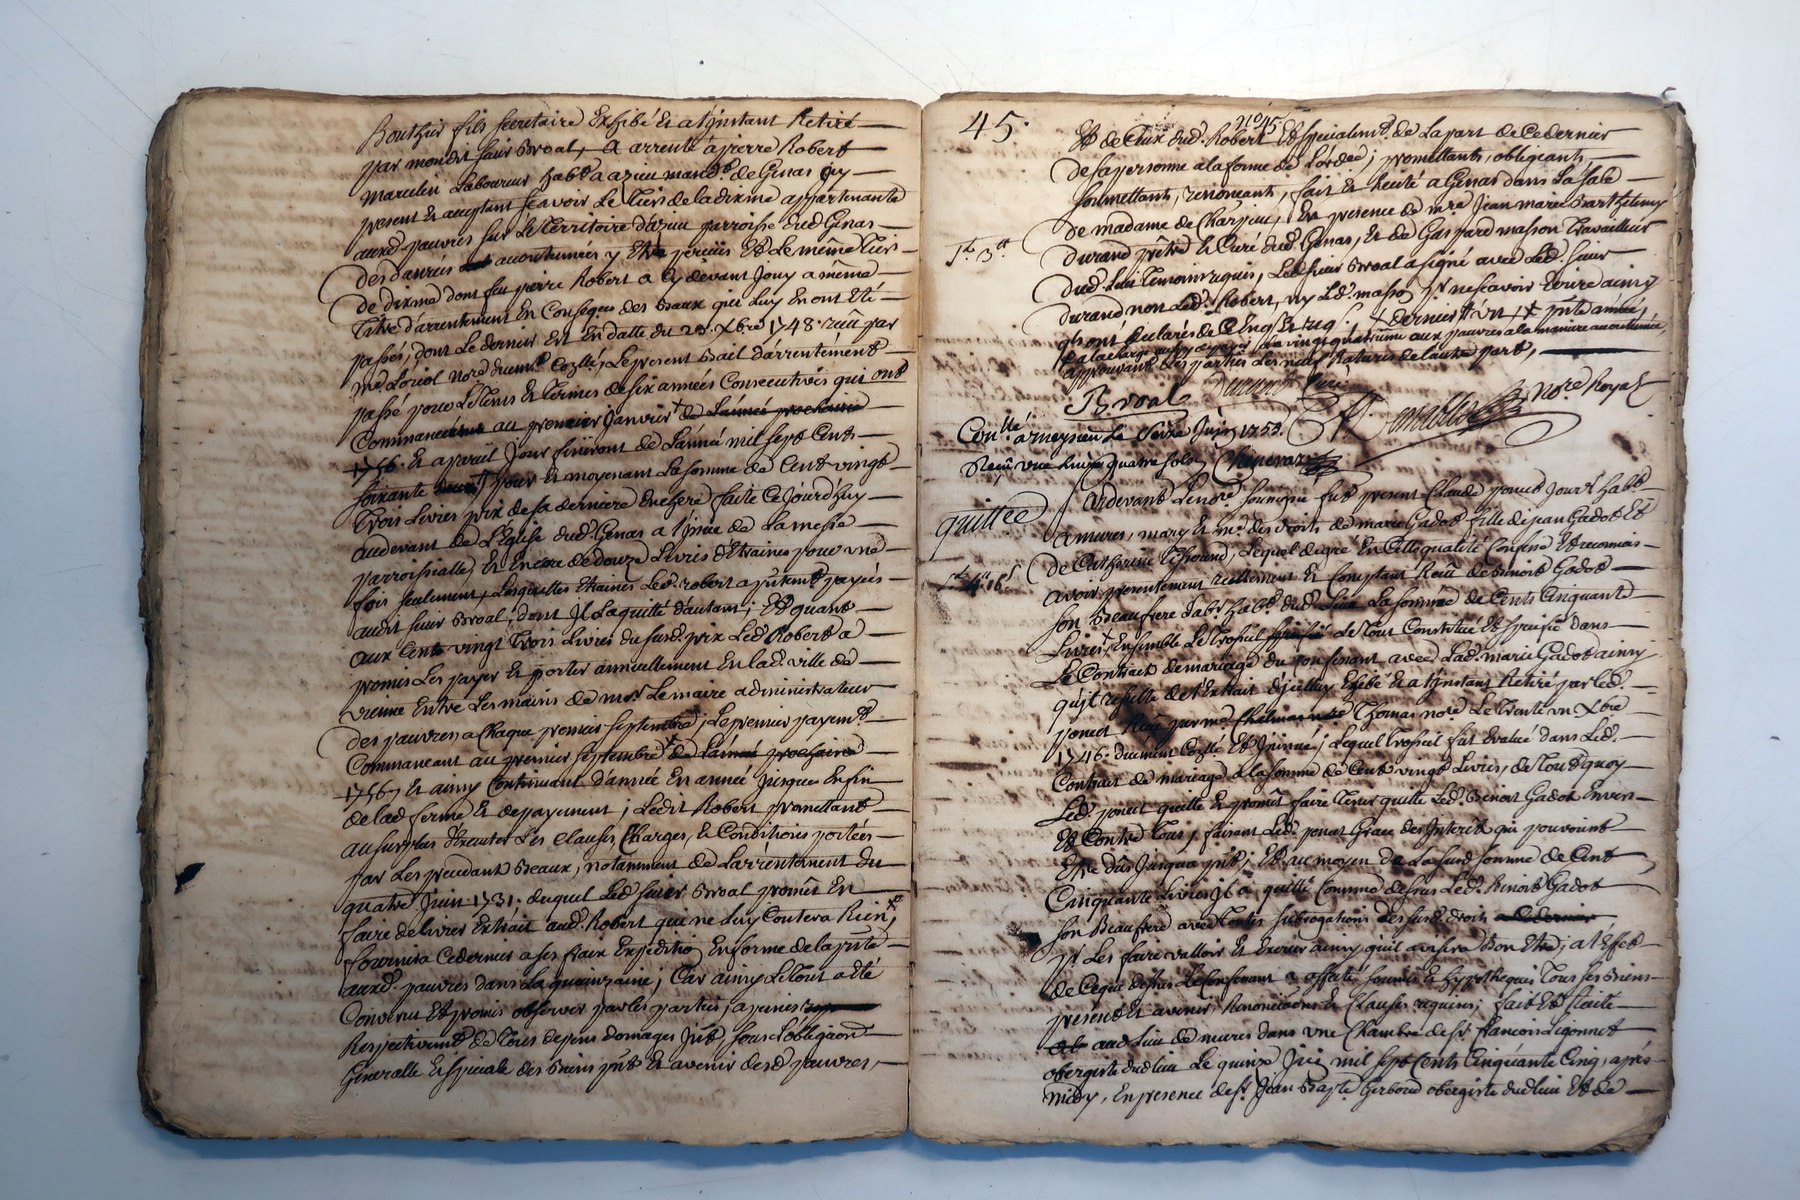 Bouthier fils secretaire Exhibé Et a l'jnstant Retiré
par mondit sieur Broal, A arrenté a pierre Robert
Marcelin Laboureur habt a azieu mandt de Genas jcy
present Et acceptant scavoir Le Tiers de la dixme appartenante
auxd. pauvres sur Le Territoire d'azieu parroisse dud. Genas
des danrées accoutumées y Etre percües Et Le même Tiers
de dixme dont feu pierre Robert a Cy devant Jouy a même
Titre d'arrentement En Conseqce des Baux qui Luy En ont Eté
passés, dont Le dernier Est En datte du 29. Xbre 1748. reçû par
me Loriol nore duemt Cozllé, Le present Bail d'arrentement
passé pour Le Tems Et Termes de six années Consecutives qui ont
Commancé au premier Janvier de L'année prochaine
1756. Et a pareil Jour finiront de L'année mil sept Cents
soixante pour Et moyenant La somme de Cent vingt
Trois Livres prix de sa derniere Enchere faite Ce Jourd'huy
audevant de L'Eglise dud. Genas a l'jssue de La messe
parroissialle, Et Encore de douze Livres d'Etraines pour une
fois seulement, Lesquelles Etraines Led. robert a pntemt payées
audit sieur Broal, dont Jl L'a quitté d'autant; Et quant
aux Cent vingt Trois Livres du susd. prix Led. Robert a
promis Les payer Et porter annuellement En lad. ville de
vienne Entre Les mains de mor Lemaire administrateur
des pauvres a Chaque premier septembre; Le premier payemt
Commancant au premier septembre de L'année prochaine
1756, Et ainsy Continuant d'année En année Jusques Enfin
de lad. ferme Et de payement; Ledit Robert promettant
au surplus d'Executer Les clauses, Charges, Et Conditions portées
par Les precedant Beaux, notamment de L'arrentement du
quatre Juin 1731. duquel Led. sieur Broal promet En
faire delivrer Extrait aud. Robert que ne Luy Coutera Rien,
fournira Ce dernier a ses fraix Expeditio En forme de la pnte
auxd. pauvres dans La quinzaine; Car ainsy Le Tout a Eté
Convenu Et promis observer par Les parties, a peines
Respectivemt de Tous depens domages Jnts, sous L'obligaon
Generalle Et speciale des Biens pnts Et avenir desd. pauvres,
45.
no 45
Et de Ceux dud. Robert Et specialemt de La part de Ce dernier
de sa personne a la forme de L'ordce; promettants, obligeants,
soumettants, renonceants, fait Et Recité a Genas dans La sale
de madame de Charpeau, En presence de mre Jean marc Barthelemy
Durand prêtre Et Curé dud. Genas, Et de Gaspard masson Travailleur
dud. Lieu Temoins requis, Led. sieur Broal a signé avec Led. sieur
durand non Led. Robert, ny Led. masson pr ne scavoir Ecrire ainsy
qls ont declarés de Ce Enqs Et req.
approuvant Les parties Les mots Raturés de L'autre part,
Broal Durand Curé nore Royal
Conllé a meyzieu Le Seize Juin 1755.
Reçu une Livre quatre sols
quittce
Pardevant Le nore soussigné fut present Claude ponet Jourr habt
a mures, mary Et me des droits de marie Gadot fille de jean Gadot Et
de Catherine, Lequel de gré En Cette qualité Confesse Et reconnais
avoir presentement reellement Et Comptant Reçû de Benoit Gadot
son Beaufrere habt dud. Lieu La somme de Cents Cinquante
Livres, Ensemble Le Trosseil Le Tout Constitué Et specifié dans
Le Contract de mariage du Confessant avec Lad. marie Gadot ainsy
qu'jl resulte de L'Extrait d'jcelluy Exibé Et a l'jnstant Retiré par led.
ponet Reçu par me Thomas nore Le Trente un Xbre
1746. duement Cozllé Et Jnsinué; Lequel Trosseil fut Evalué dans Led.
Contract de mariage a La somme de Cent vingt Livres, de Tout quoy
Led. ponet quitte Et promet faire Tenir quitte Led. Benoit Gadot Envers
Et Contre Tous; faisant Led. ponet Grace des Jnterêts qui pouvoient
Etre dûs Jusqu'a pnt; Et au moyen de La susd. somme de Cent
Cinquante Livres Jl a quitté Comme dessus Led. Benoit Gadot
son Beaufrere avec Toutes subrogations Des susd. droits
pr Les faire valloir Et Exercer ainsy qu'il avisera Bon Etre; a L'Effet
de Ceque dessus Le Confessant a affecté soumis Et hypothequé Tous ses Biens
present Et avenir; Renonciaons Et Clauses requises; fait Et Recité
aud. Lieu de mures dans une Chambre de sr. francois Ligonnet
obergiste dud. lieu Le quinze Juin mil sept Cents Cinquante Cinq, après
midy, En presence de sr. Jean Bapte Gerboud obergiste dud. lieu Et de